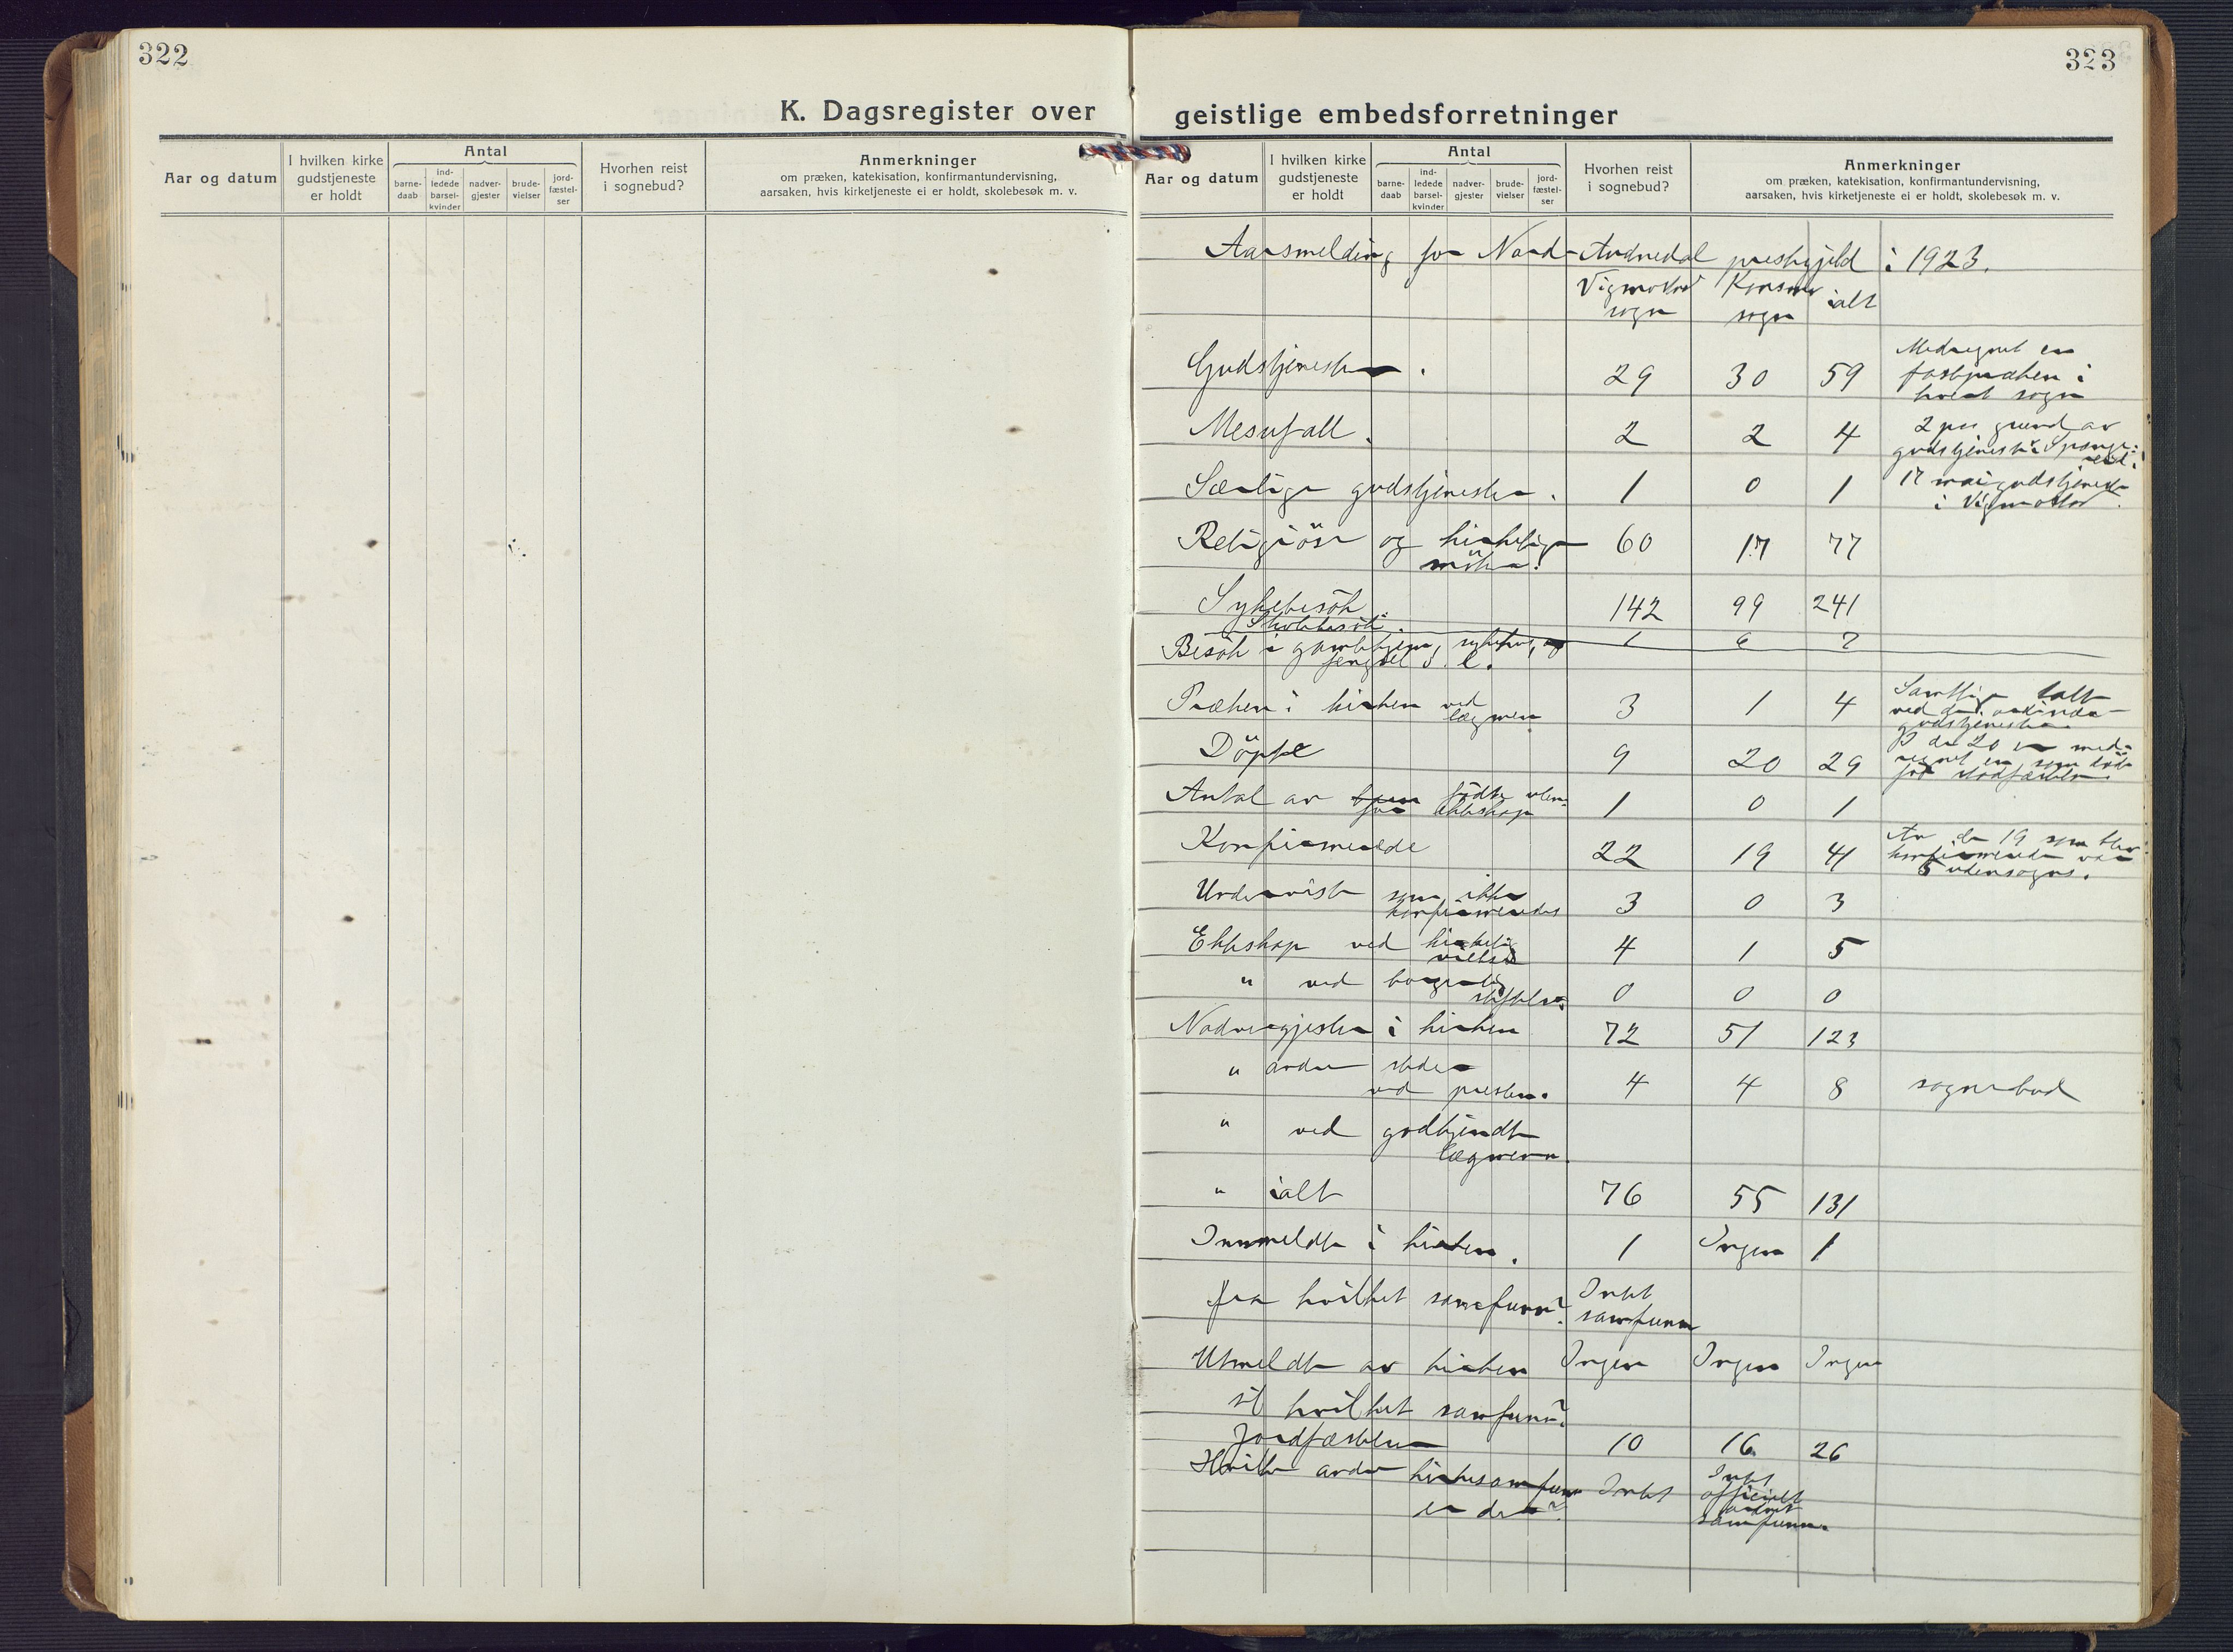 322
K. Dagsregister over
Aar og datum
I hvilken kirke gudstjeneste er holdt
Antal
barne-daab
ind-ledede barsel-kvinder
nadver-gjester
brude-vielser
jord-fæstel-ser
Hvorhen reist i sognebud?
Anmerkninger
om præken, katekisation, konfirmantundervisning,
aarsaken, hvis kirketjeneste ei er holdt, skolebesøk m. v.
323
geistlige embedsforretninger
Aar og datum
I hvilken kirke gudstjeneste er holdt
Antal
barne-daab
ind-ledede barsel-kvinder
nadver-gjester
brude-vielser
jord-fæstel-ser
Hvorhen reist i sognebud?
Anmerkninger
om præken, katekisation, konfirmantundervisning,
aarsaken, hvis kirketjeneste ei er holdt, skolebesøk m. v.
Aarsmelding for Nord-Audnedal prestegjeld i 1923.
Vigmostad sogn Konsmo sogn ialt
Gudstjenester. 29 30 59 Medregnet en fastepræken i hvert sogn
Messefall. 2 2 4 2 paa grund av gudstjeneste i Spangereid.
Særlige gudstjenester. 1 0 1 17 mai gudstjeneste i Vigmostad.
Religiöse og kirkelige möter. 60 17 77
Sykebesök 142 99 241
Skolebesök. 1 6 7
Besök i gamlehjem, sykehus, og fengsel o. l.
Præken i kirken ved lægmen 3 1 4 Samtlige talte ved gudstjenesten
Döpte 9 20 29 I de 20 er medregnet en som döde för stadfæstelsen.
Antal av barn födte utenfor ekteskap 1 0 1
Konfirmerede 22 19 41 Av de 19 som blev konfirmerede var 5 utensogns.
Underviste som ikke konfirmeredes 3 0 3
Ekteskap ved kirkelig vielse 4 1 5
" ved borgerlig stiftelse. 0 0 0
Nadvergjester i kirken 72 51 123
" andre steder ved presten. 4 4 8 sognebud
" ved godkjendte lægmenn.
" ialt 76 55 131
Innmeldte i kirken. 1 Ingen 1
fra hvilket samfunn? Intet samfunn
Utmeldte av kirken Ingen Ingen Ingen
til hvilket samfunn?
Jordfæstelser 10 16 26
Hvilke andre kirkesamfunn er der? Intet Intet officielt andet samfunn.